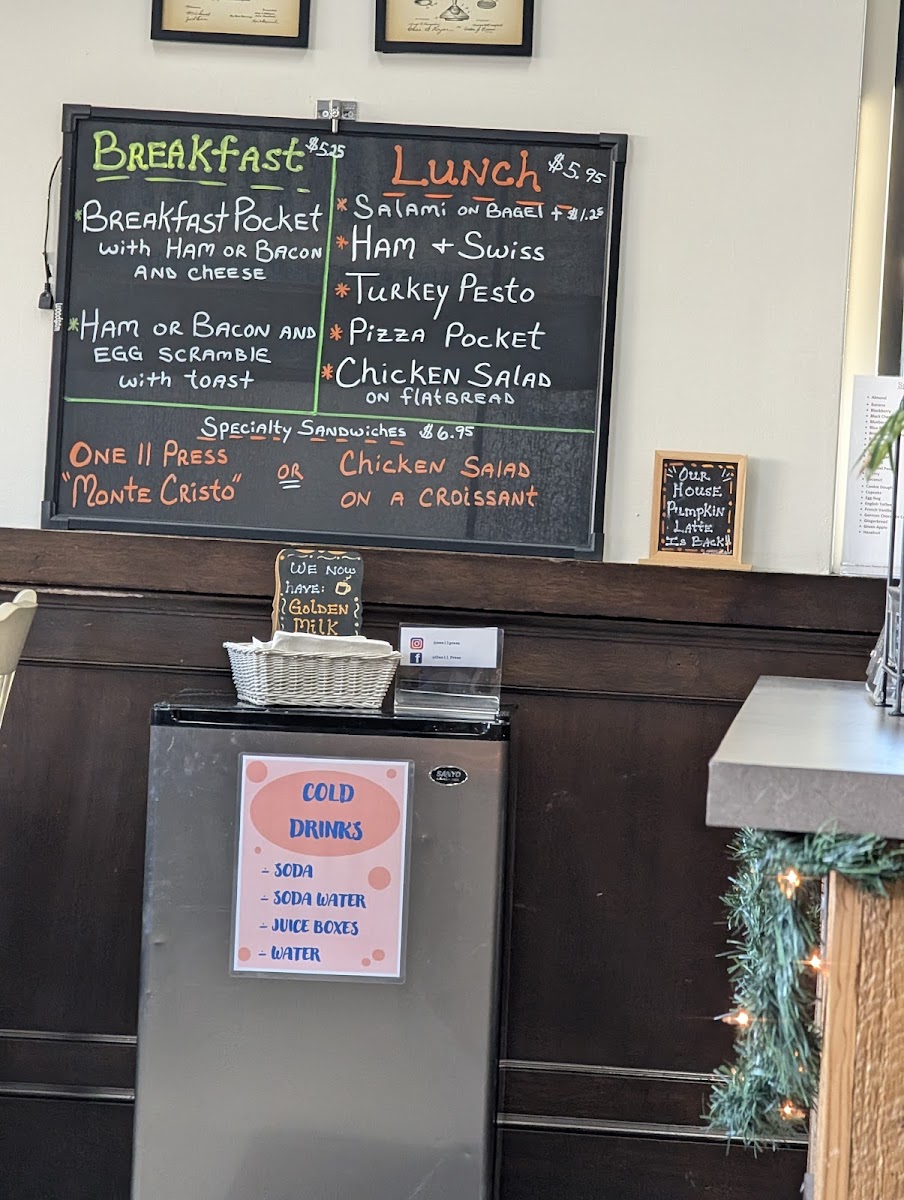 BREAKfAST $5.25
*BREAKfAST POCKET
with HAM OR BACON
AND CHEESE
*HAM OR BACON AND
EGG SCRAMBLE
with tOAST
LUNCH $5.95
*SALAMI ON BAGEL + $1.25
*HAM + SWISS
*TURKEY PESTO
*PIZZA POCKET
*CHICKEN SALAD
ON flATBREAD
SPECIALTY SANDWICHES $6.95
ONE 11 PRESS
"MONTE CRISTO"
OR
CHICKEN SALAD
ON A CROISSANT
OUR
HOUSE
PUMPKIN
LATTE
IS BACK!
WE NOW
HAVE:
GOLDEN
MILK
COLD
DRINKS
- SODA
- SODA WATER
- JUICE BOXES
- WATER
SANYO
Almond
Banana
Blackberry